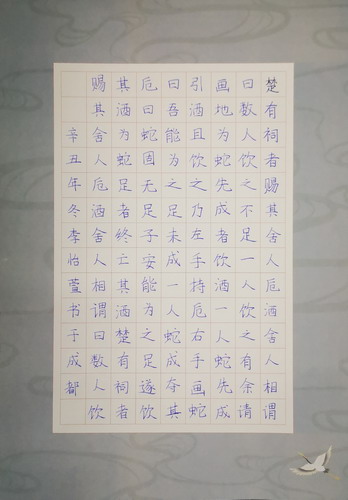 楚有祠者赐其舍人卮酒舍人相谓
曰数人饮之不足一人饮之有余请
画地为蛇先成者饮酒一人蛇先成
引酒且饮之乃左手持卮右手画蛇
曰吾能为之足未成一人蛇成夺其
卮曰蛇固无足子安能为之足遂饮
其酒为蛇足者终亡其酒楚有祠者
赐其舍人卮酒舍人相谓曰数人饮
辛丑年冬李怡萱书于成都